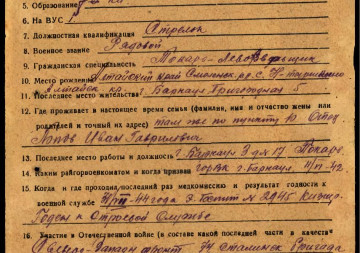 5. Образование
6. На ВУС
7. Должностная квалификация Стрелок
8. Военное звание Рядовой
9. Гражданская специальность Токарь
10. Место рождения Алтайский край Смоленск. р-о с.
11. Последнее место жительства Алтайск кр. г. Барнаул 5
12. Где проживает в настоящее время семья (фамилия, имя и отчество жены или
родителей и точный их адрес) там же по пункту 10 Отец
Попов Иван Гаврилович
13. Последнее место работы и должность г. Барнаул З-д 17. Токарь.
14. Каким райгорвоенкоматом и когда призван г. Барнаул 42.
15. Когда и где проходил последний раз медкомиссию и результат годности к
военной службе 44 года э. госпит № 2945
Годен к Строевой Службе
16. Участие в Отечественной войне (в составе какой последней части и в качестве
Северо-Западн фронт. 74 Сталинск бригада